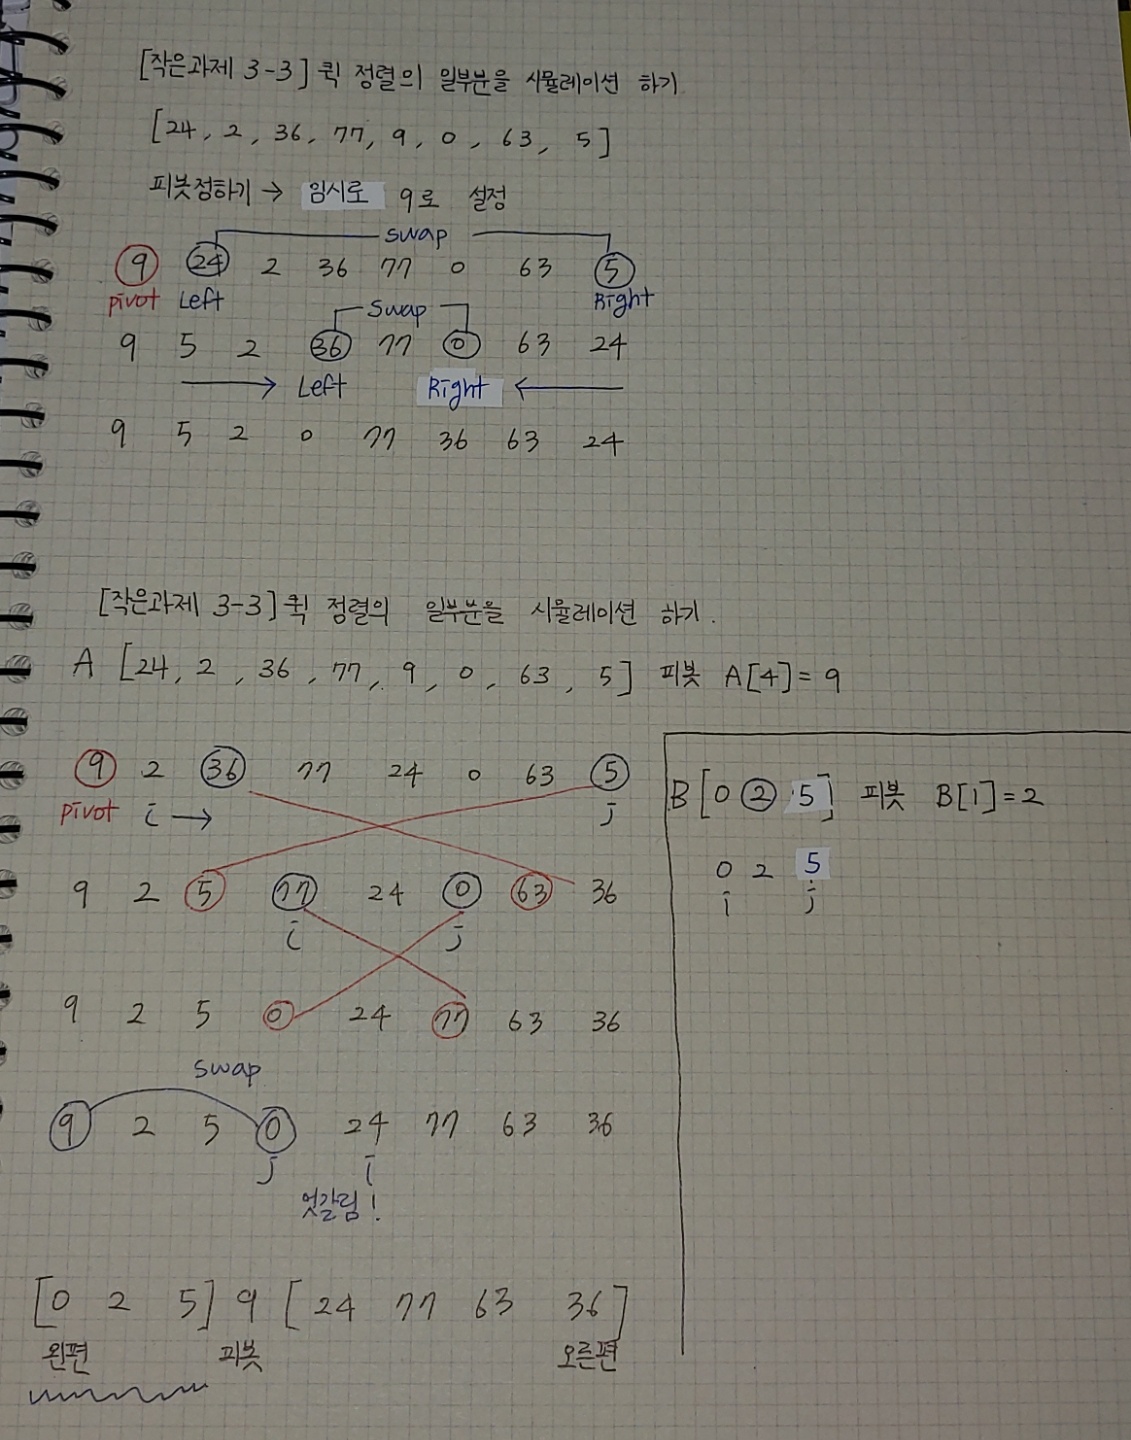 [작은과제 3-3] 퀵 정렬의 일부분을 시뮬레이션 하기
[24, 2, 36, 77, 9, 0, 63, 5]
피봇정하기 → 임시로 9로 설정
swap
9 24 2 36 77 0 63 5
pivot Left Right
swap
9 5 2 36 77 0 63 24
→ Left Right ←
9 5 2 0 77 36 63 24
[작은과제 3-3] 퀵 정렬의 일부분을 시뮬레이션 하기.
A [24, 2, 36, 77, 9, 0, 63, 5] 피봇 A[4]=9
9 2 36 77 24 0 63 5
pivot i → j
9 2 5 77 24 0 63 36
i j
9 2 5 0 24 77 63 36
swap
9 2 5 0 24 77 63 36
j i
엇갈림!
[0 2 5] 9 [24 77 63 36]
왼편 피봇 오른편
B [0 2 5] 피봇 B[1]=2
0 2 5
i j